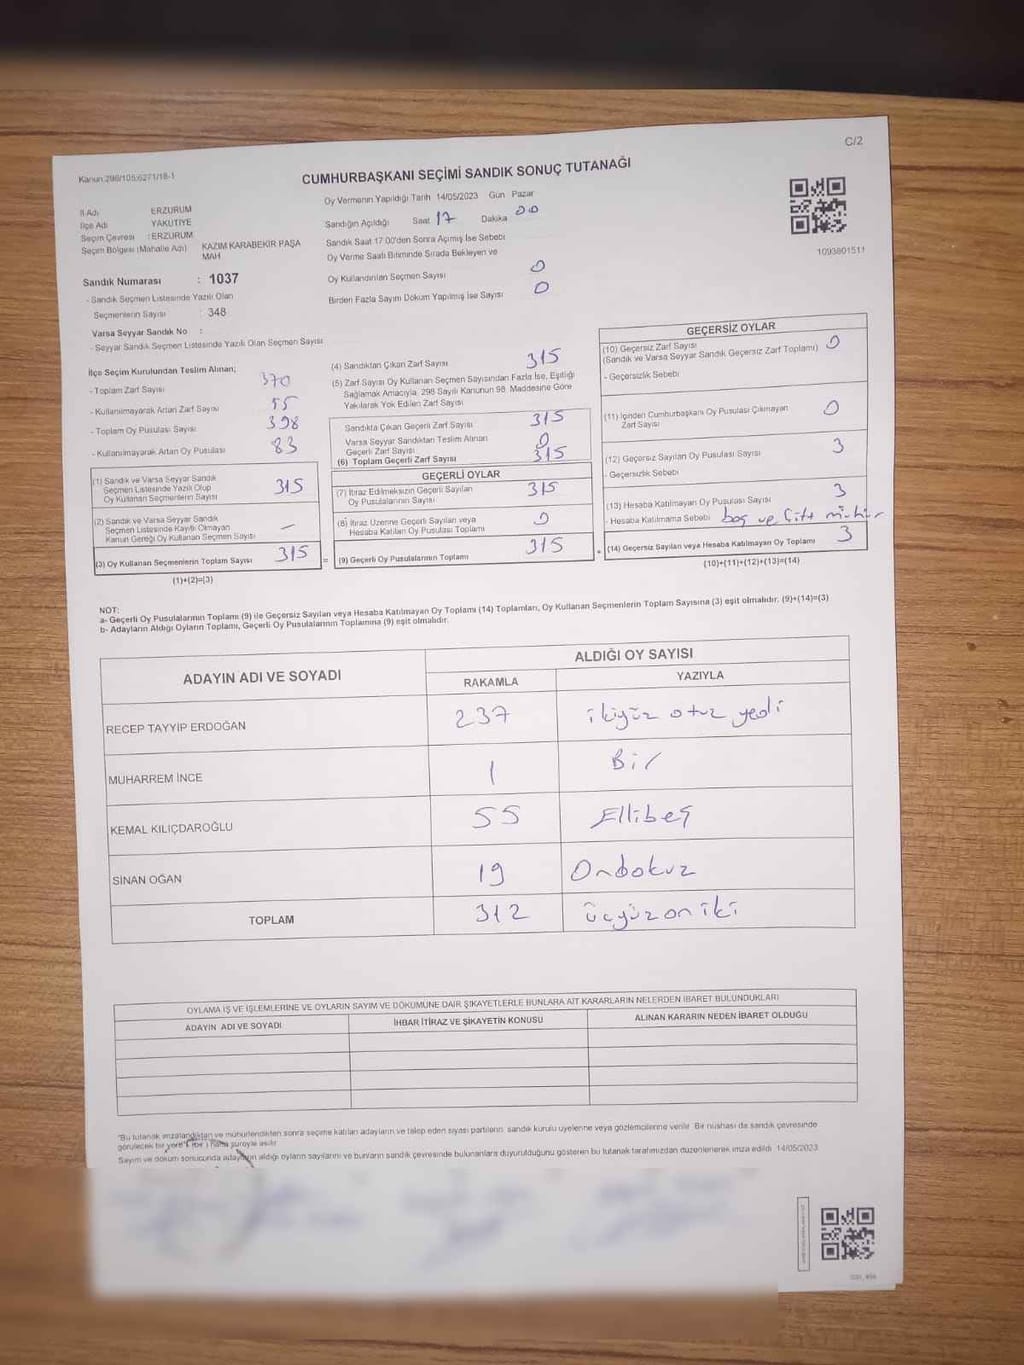 C/2
Kanun:298/105;6271/18-1
CUMHURBAŞKANI SEÇİMİ SANDIK SONUÇ TUTANAĞI
İl Adı ERZURUM
İlçe Adı YAKUTİYE
Seçim Çevresi : ERZURUM
Seçim Bölgesi (Mahalle Adı) KAZIM KARABEKİR PAŞA
MAH
Sandık Numarası : 1037
- Sandık Seçmen Listesinde Yazılı Olan
Seçmenlerin Sayısı : 348
Varsa Seyyar Sandık No :
- Seyyar Sandık Seçmen Listesinde Yazılı Olan Seçmen Sayısı
Oy Vermenin Yapıldığı Tarih 14/05/2023 Gün Pazar
Sandığın Açıldığı Saat 17 Dakika 00
Sandık Saat 17.00'den Sonra Açılmış İse Sebebi
Oy Verme Saati Bitiminde Sırada Bekleyen ve
Oy Kullandırılan Seçmen Sayısı 0
Birden Fazla Sayım Döküm Yapılmış İse Sayısı 0
1093801511
İlçe Seçim Kurulundan Teslim Alınan;
- Toplam Zarf Sayısı 370
- Kullanılmayarak Artan Zarf Sayısı 55
- Toplam Oy Pusulası Sayısı 398
- Kullanılmayarak Artan Oy Pusulası 83
(1) Sandık ve Varsa Seyyar Sandık
Seçmen Listesinde Yazılı Olup
Oy Kullanan Seçmenlerin Sayısı 315
(2) Sandık ve Varsa Seyyar Sandık
Seçmen Listesinde Kayıtlı Olmayan
Kanun Gereği Oy Kullanan Seçmen Sayısı —
(3) Oy Kullanan Seçmenlerin Toplam Sayısı 315 =
(1)+(2)=(3)
(4) Sandıktan Çıkan Zarf Sayısı 315
(5) Zarf Sayısı Oy Kullanan Seçmen Sayısından Fazla İse, Eşitliği
Sağlamak Amacıyla, 298 Sayılı Kanunun 98. Maddesine Göre
Yakılarak Yok Edilen Zarf Sayısı
Sandıkta Çıkan Geçerli Zarf Sayısı 315
Varsa Seyyar Sandıktan Teslim Alınan
Geçerli Zarf Sayısı 0
(6) Toplam Geçerli Zarf Sayısı 315
GEÇERLİ OYLAR
(7) İtiraz Edilmeksizin Geçerli Sayılan
Oy Pusulalarının Sayısı 315
(8) İtiraz Üzerine Geçerli Sayılan veya
Hesaba Katılan Oy Pusulası Toplamı 0
(9) Geçerli Oy Pusulalarının Toplamı 315 +
GEÇERSİZ OYLAR
(10) Geçersiz Zarf Sayısı
(Sandık ve Varsa Seyyar Sandık Geçersiz Zarf Toplamı) 0
- Geçersizlik Sebebi
(11) İçinden Cumhurbaşkanı Oy Pusulası Çıkmayan
Zarf Sayısı 0
(12) Geçersiz Sayılan Oy Pusulası Sayısı 3
- Geçersizlik Sebebi
(13) Hesaba Katılmayan Oy Pusulası Sayısı 3
- Hesaba Katılmama Sebebi boş ve çift mühür
(14) Geçersiz Sayılan veya Hesaba Katılmayan Oy Toplamı 3
(10)+(11)+(12)+(13)=(14)
NOT:
a- Geçerli Oy Pusulalarının Toplamı (9) ile Geçersiz Sayılan veya Hesaba Katılmayan Oy Toplamı (14) Toplamları, Oy Kullanan Seçmenlerin Toplam Sayısına (3) eşit olmalıdır. (9)+(14)=(3)
b- Adayların Aldığı Oyların Toplamı, Geçerli Oy Pusulalarının Toplamına (9) eşit olmalıdır.
ADAYIN ADI VE SOYADI ALDIĞI OY SAYISI
RAKAMLA YAZIYLA
RECEP TAYYİP ERDOĞAN 237 ikiyüz otuz yedi
MUHARREM İNCE 1 Bir
KEMAL KILIÇDAROĞLU 55 Ellibeş
SİNAN OĞAN 19 Ondokuz
TOPLAM 312 üçyüz on iki
OYLAMA İŞ VE İŞLEMLERİNE VE OYLARIN SAYIM VE DÖKÜMÜNE DAİR ŞİKAYETLERLE BUNLARA AİT KARARLARIN NELERDEN İBARET BULUNDUKLARI
ADAYIN ADI VE SOYADI İHBAR İTİRAZ VE ŞİKAYETİN KONUSU ALINAN KARARIN NEDEN İBARET OLDUĞU
"Bu tutanak imzalandıktan ve mühürlendikten sonra seçime katılan adayların ve talep eden siyasi partilerin sandık kurulu üyelerine veya gözlemcilerine verilir. Bir nüshası da sandık çevresinde
görülecek bir yere 1 (bir) hafta süreyle asılır.
Sayım ve döküm sonucunda adayların aldığı oyların sayılarını ve bunların sandık çevresinde bulunanlara duyurulduğunu gösteren bu tutanak tarafımızdan düzenlenerek imza edildi. 14/05/2023